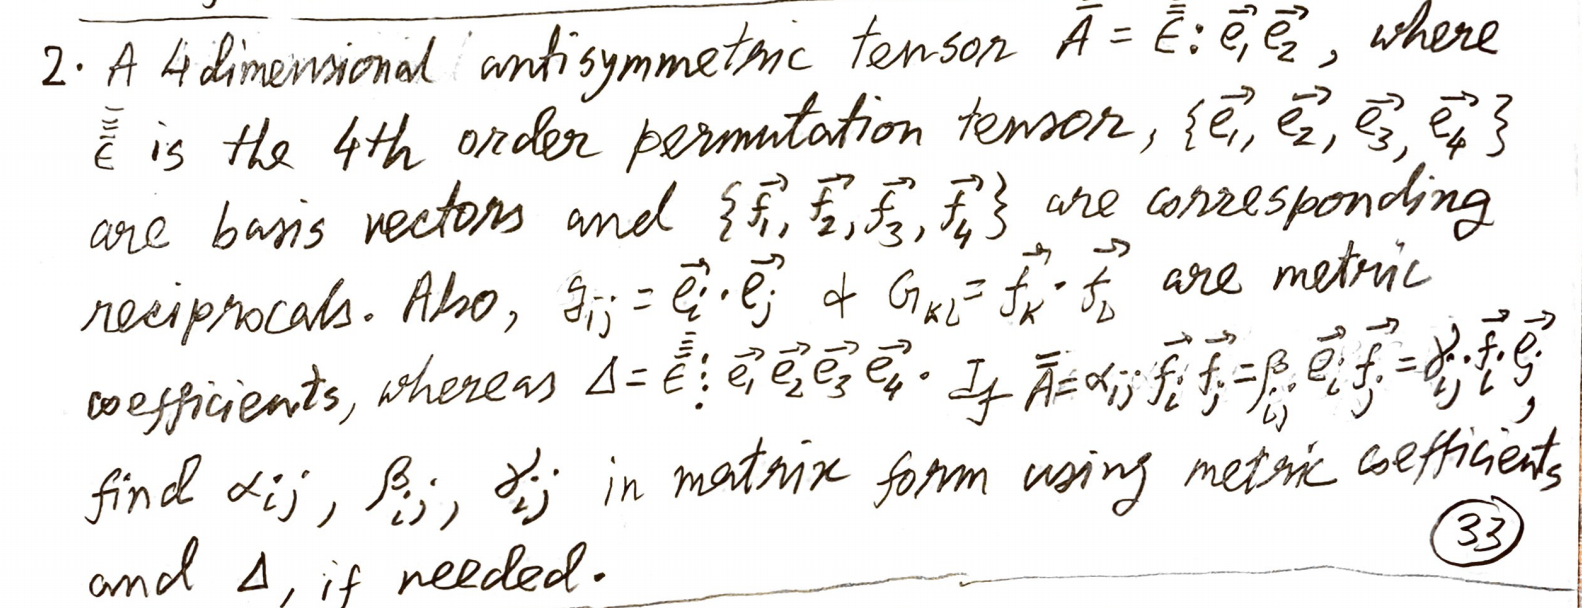 2. A 4 dimensional antisymmetric tensor A̿ = ϵ̿̿ : e⃗₁ e⃗₂ , where
ϵ̿̿ is the 4th order permutation tensor, {e⃗₁, e⃗₂, e⃗₃, e⃗₄}
are basis vectors and {f⃗₁, f⃗₂, f⃗₃, f⃗₄} are corresponding
reciprocals. Also, gᵢⱼ = e⃗ᵢ · e⃗ⱼ & G_KL = f⃗_K · f⃗_L are metric
coefficients, whereas Δ = ϵ̿̿ ⁞ e⃗₁ e⃗₂ e⃗₃ e⃗₄. If A̿ = αᵢⱼ f⃗ᵢ f⃗ⱼ = βᵢⱼ e⃗ᵢ f⃗ⱼ = γᵢⱼ f⃗ᵢ e⃗ⱼ,
find αᵢⱼ, βᵢⱼ, γᵢⱼ in matrix form using metric coefficients
(33)
and Δ, if needed.